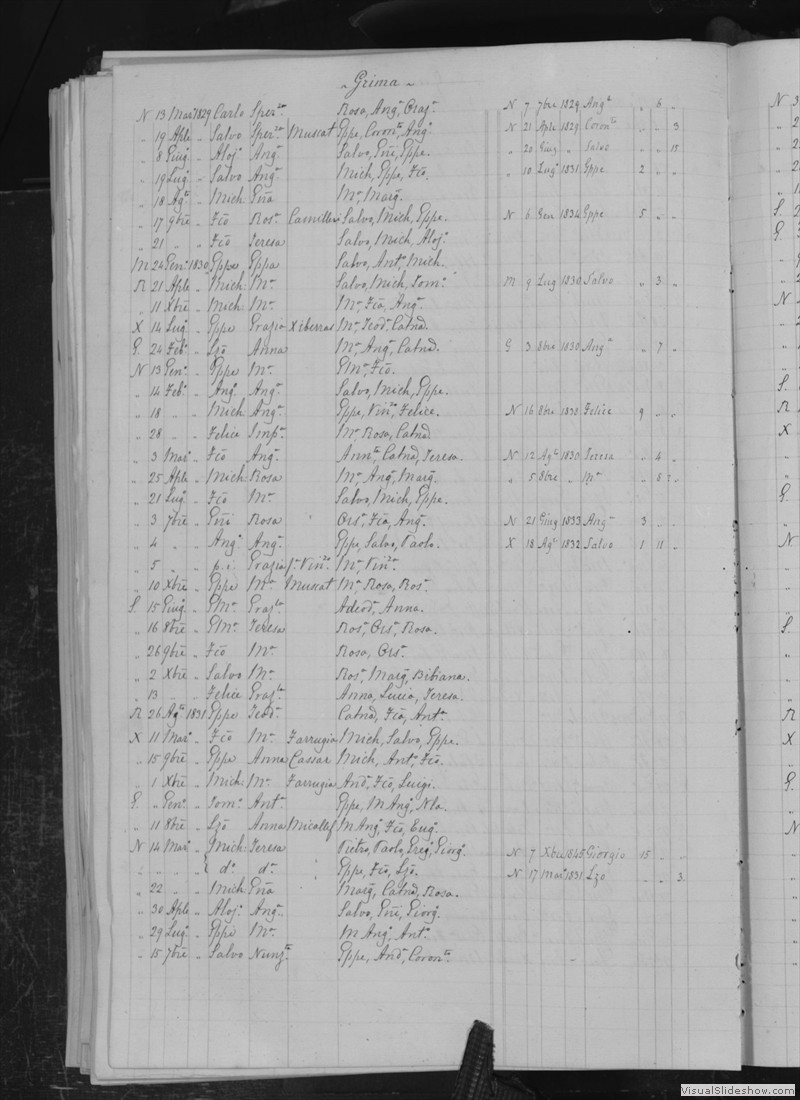 Grima
N 13 Mar 1829 Carlo Sper Rosa, Ang, Oraz. N 7 7bre 1829 Ang " 6 "
" 19 Aple " Salvo Sper Muscat Gppe, Coron, Ang N 21 Aple 1829 Coron " " 3
" 8 Giug " Aloj Ang Salvo, Eñi, Gppe. " 20 Giug " Salvo " " 15
" 19 Lug " Salvo Ang Mich, Gppe, Fcõ. " 10 Lug 1831 Gppe 2 " "
" 18 Ag " Mich Eña M, Marg.
" 17 9bre " Fcõ Ros Camilleri Salvo, Mich, Gppe. N 6 Gen 1834 Gppe 5 " "
" 21 " " Fcõ Teresa Salvo, Mich, Aloj.
M 24 Gen 1830 Gppe Gppa Salvo, Ant, Mich.
R 21 Aple " Mich M Salvo, Mich, Tom. M 9 Lug 1830 Salvo " 3 "
" 11 Xbre " Mich M M, Fcõ, Ang.
X 14 Lug " Gppe Grazia Xiberras M, Teod, Catnd.
G 24 Feb " Lzõ Anna M, Ang, Catnd. G 3 8bre 1830 Ang " 7 "
N 13 Gen " Gppe M GM, Fcõ.
" 14 Feb " Ang Ang Salvo, Mich, Gppe.
" 18 " " Mich Ang Gppe, Vin, Felice. N 16 8bre 1838 Felice 9 " "
" 28 " " Felice Imp M, Rosa, Catnd
" 3 Mar " Fcõ Ang Ann, Catnd, Teresa. N 12 Ag 1830 Teresa " 4 "
" 25 Aple " Mich Rosa M, Ang, Marg. " 5 8bre " " 8 2 "
" 21 Lug " Fcõ M Salvo, Mich, Gppe.
" 3 7bre " Eñi Rosa Ors, Fcõ, Ang. N 21 Giug 1833 Ang 3 " "
" 4 " " Ang Ang Gppe, Salvo, Paolo. X 18 Ag 1832 Salvo 1 11 "
" 5 " " p.i. Grazia Vin M, Vin.
" 10 Xbre " Gppe M Muscat M, Rosa, Ros.
S. 15 Giug " GM Graz Adeod, Anna.
" 16 8bre " GM Teresa Ros, Ors, Rosa.
" 26 9bre " Fcõ M Rosa, Ors.
" 2 Xbre " Salvo M Ros, Marg, Bibiana.
" 13 " " Felice Graz Anna, Lucia, Teresa.
R 26 Ag 1831 Gppe Teod Catnd, Fcõ, Ant.
X 11 Mar " Fcõ M Farrugia Mich, Salvo, Gppe.
" 15 9bre " Gppe Anna Cassar Mich, Ant, Fcõ.
" 1 Xbre " Mich M Farrugia And, Fcõ, Luigi.
G. " Gen " Tom Ant Gppe, M Ang, Nla.
" 11 8bre " Lzõ Anna Micallef M Ang, Fcõ, Eug.
N 14 Mar " Mich Teresa Pietro, Paolo, Greg, Giorg. N 7 Xbre 1845 Giorgio 15 " "
" " " " d. d. " Gppe, Fcõ, Lzõ. N 17 Mar 1831 Lzo " " 3
" 22 " " Mich Eña Marg, Catnd, Rosa.
" 30 Aple " Aloj Ang Salvo, Eñi, Giorg.
" 29 Lug " Gppe M M Ang, Ant.
" 15 7bre " Salvo Nunz Gppe, And, Coron.
VisualSlideshow.com